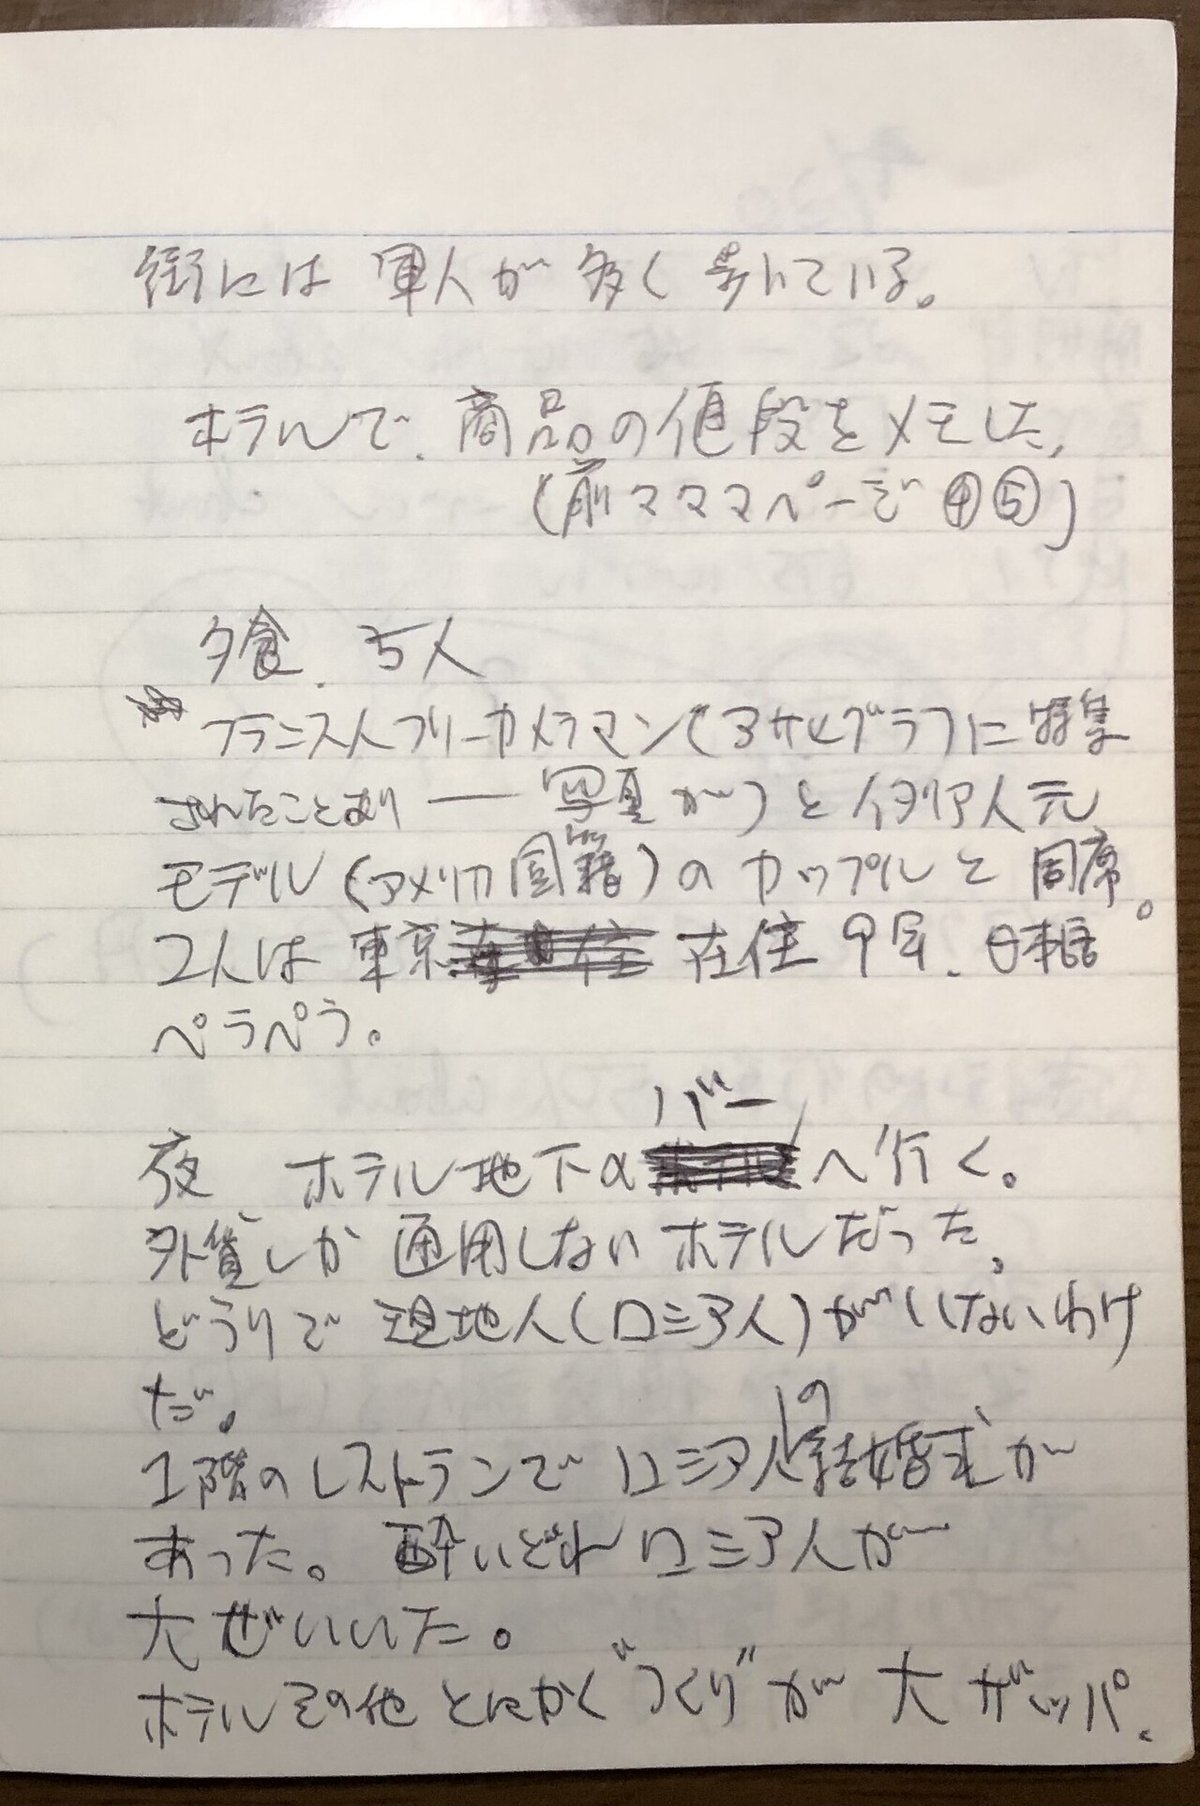 街には 軍人が 多く 歩いている。
ホテルで、商品の値段をメモした、
(前ママママページ ④⑤)
夕食、5人
フランス人フリーカメラマン(アサヒグラフに特集
されたことあり ― 写真が)とイタリア人元
モデル(アメリカ国籍)のカップルと同席。
2人は 東京 在住 9年、日本語
ペラペラ。
夜 ホテル地下のバーへ行く。
外貨しか 通用しないホテルだった。
どうりで 現地人(ロシア人)がいないわけ
だ。
1階のレストランでロシア人の結婚式が
あった。酔いどれロシア人が
大ぜいいた。
ホテルその他 とにかく"つくり"が 大ザッパ。